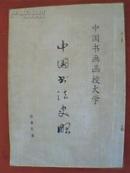 中国书画函授大学
中国书法史略